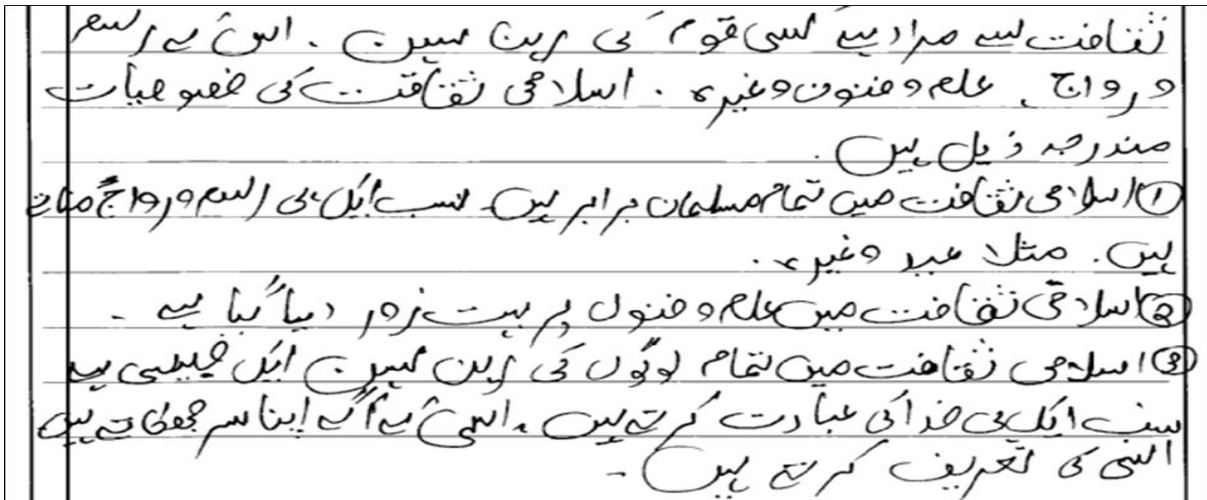 ثقافت سے مراد ہے کسی قوم کی رہن سہن ۔ اس کے رسم
و رواج ، علم و فنون وغیرہ ۔ اسلامی ثقافت کی خصوصیات
مندرجہ ذیل ہیں ۔
① اسلامی ثقافت میں تمام مسلمان برابر ہیں ۔ سب ایک ہی رسم و رواج مناتے
ہیں ۔ مثلا عید وغیرہ ۔
② اسلامی ثقافت میں علم و فنون پر بہت زور دیا گیا ہے ۔
③ اسلامی ثقافت میں تمام لوگوں کی رہن سہن ایک جیسی ہے
سب ایک ہی خدا کی عبادت کرتے ہیں ۔ اسی کے آگے اپنا سر جھکاتے ہیں
اسی کی تعریف کرتے ہیں ۔